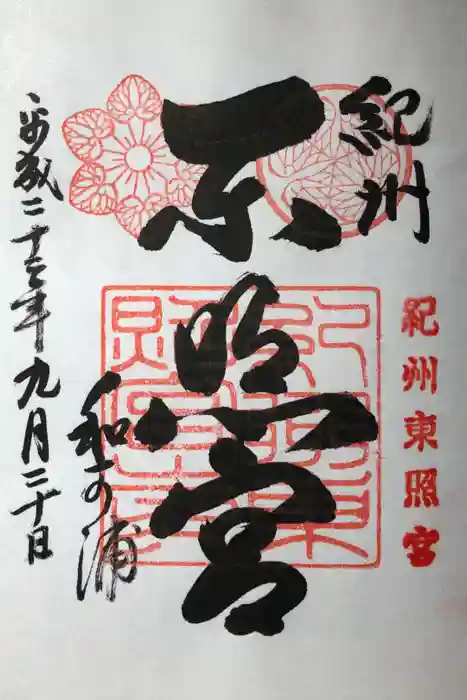 紀州東照宮
紀州
東照宮
和可浦
平成二十三年九月三十日